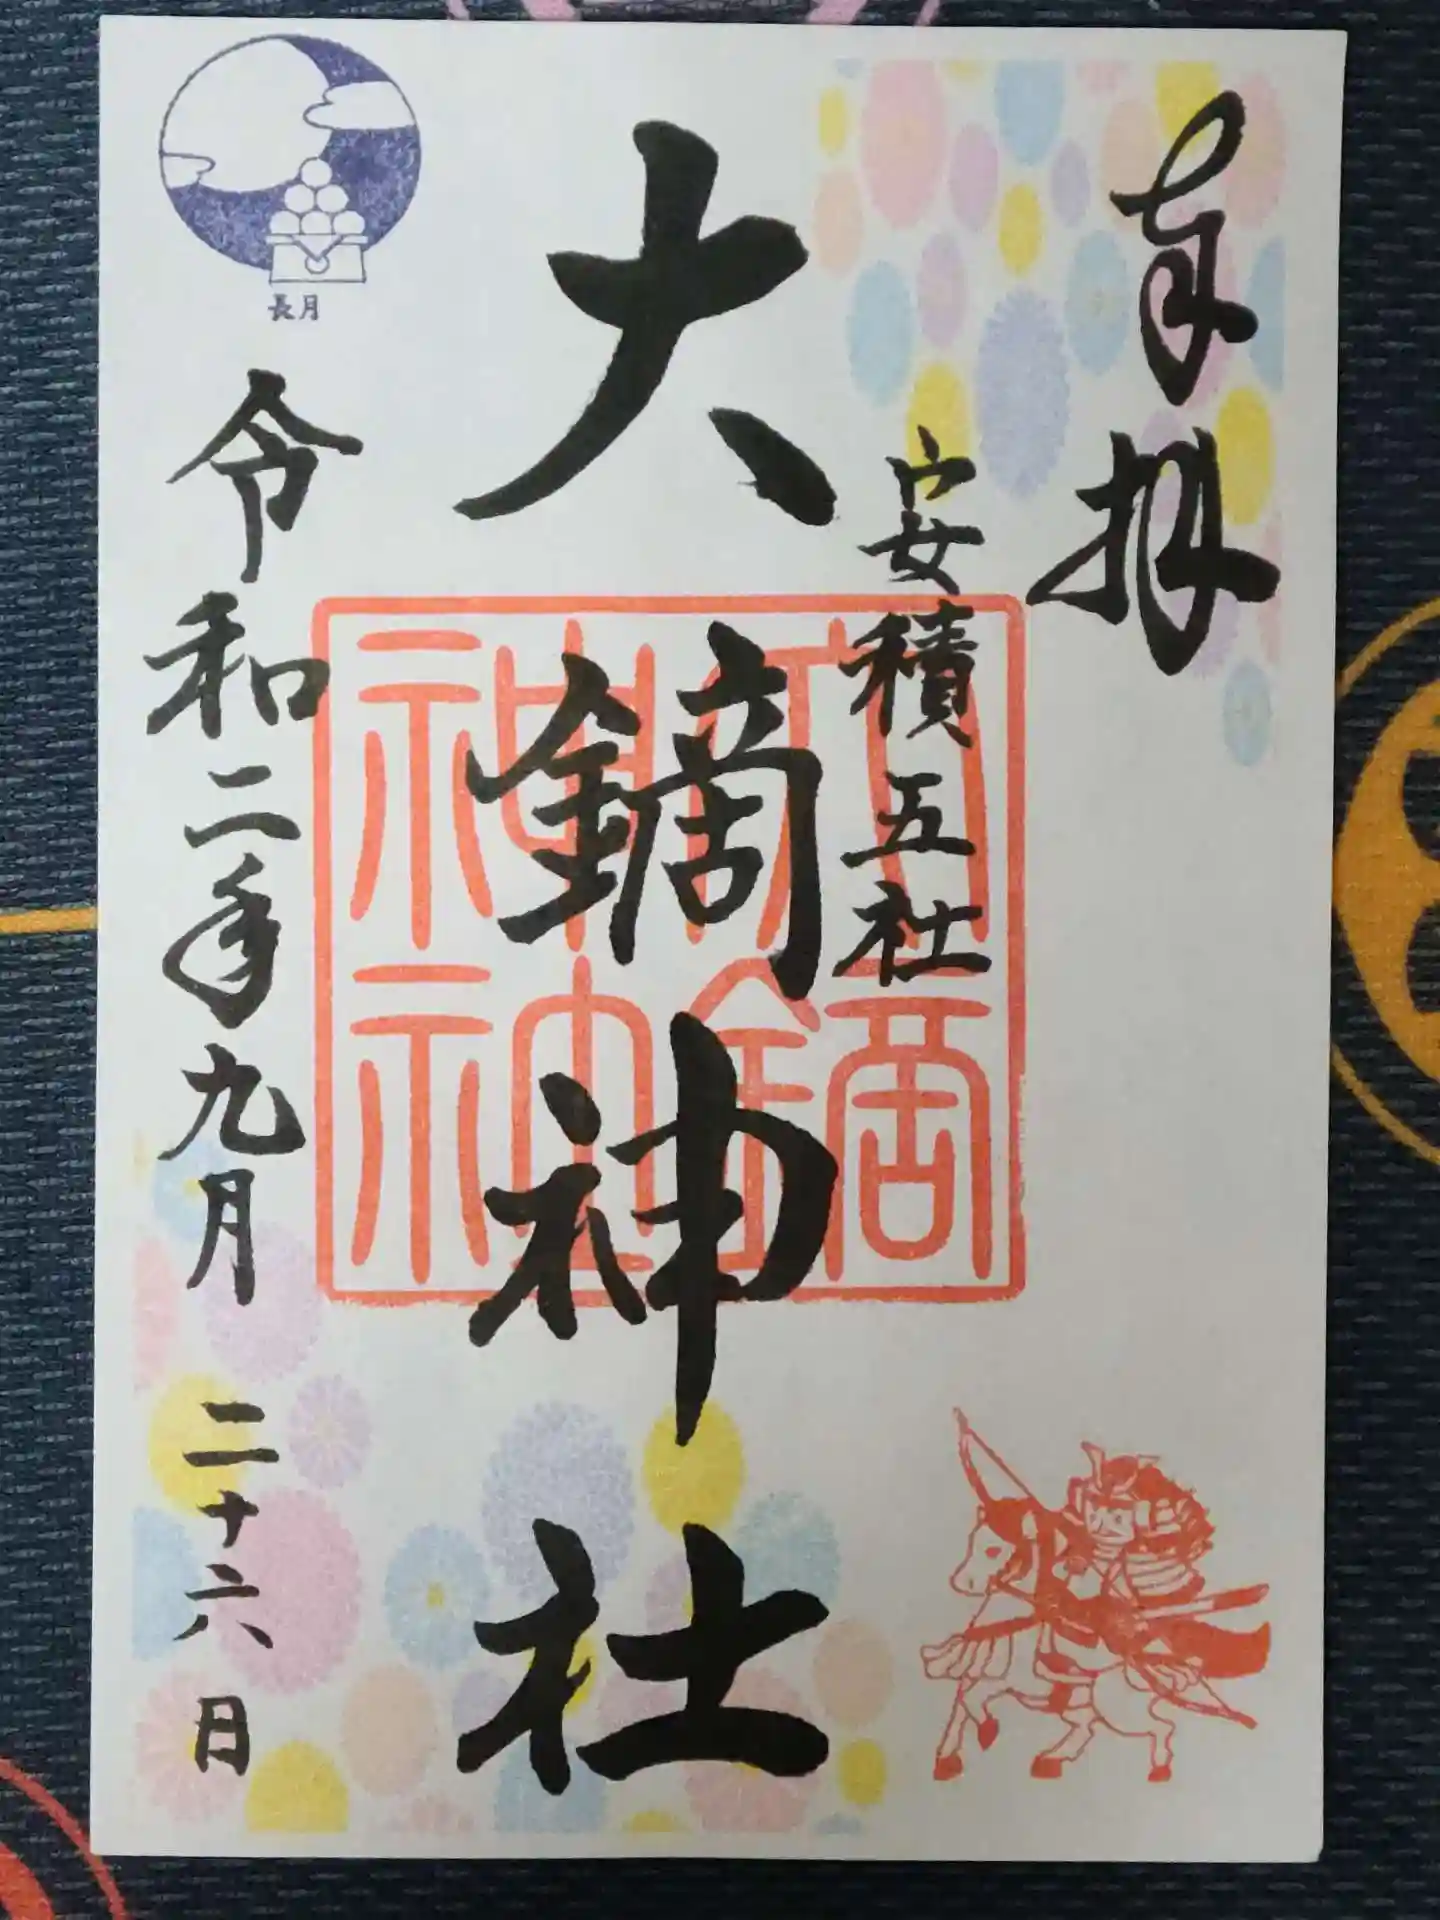 奉拝
安積五社
大鏑神社
大鏑神社
長月
令和二年九月二十六日